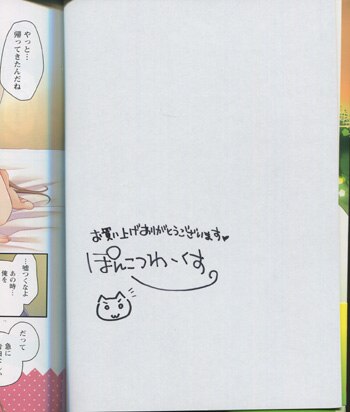 やっと…
帰ってきたんだね
…嘘つくなよ
あの時…
俺を
だって
急に
お買い上げありがとうございます♥
ぽんこつわーくす